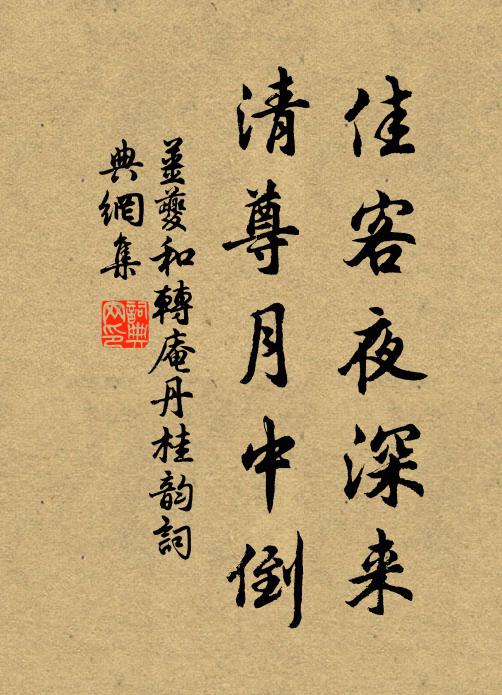 佳客夜深来
清尊月中倒
姜夔和轉庵丹桂韵詞
典網集
詞典网印